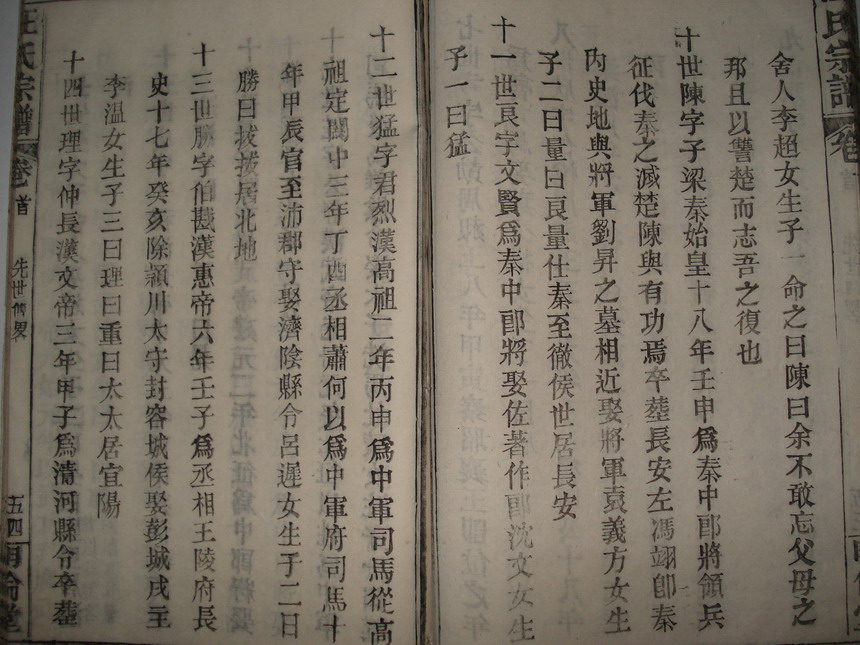 氏宗譜
卷
首
舍人李超女生子一命之曰陳曰余不敢忘父母之
邦且以讐楚而志吾之復也
十世陳字子梁秦始皇十八年壬申爲秦中郎將領兵
征伐秦之滅楚陳與有功焉卒塟長安左馮翊卽秦
內史地與將軍劉昇之墓相近娶將軍袁義方女生
子二曰量曰良量仕秦至徹侯世居長安
十一世良字文賢爲秦中郎將娶佐著作郎沈文女生
子一曰猛
十二世猛字君烈漢高祖二年丙申爲中軍司馬從高
祖定關中三年丁酉丞相蕭何以爲中軍府司馬十
年甲辰官至沛郡守娶濟陰縣令呂遲女生子二曰
勝曰拔拔居北地
十三世勝字伯戡漢惠帝六年壬子爲丞相王陵府長
史十七年癸亥除潁川太守封容城侯娶彭城戌主
李温女生子三曰理曰重曰太太居宜陽
十四世理字仲長漢文帝三年甲子爲清河縣令卒塟
汪氏宗譜
卷
首
先世傳畧
五四
明倫堂